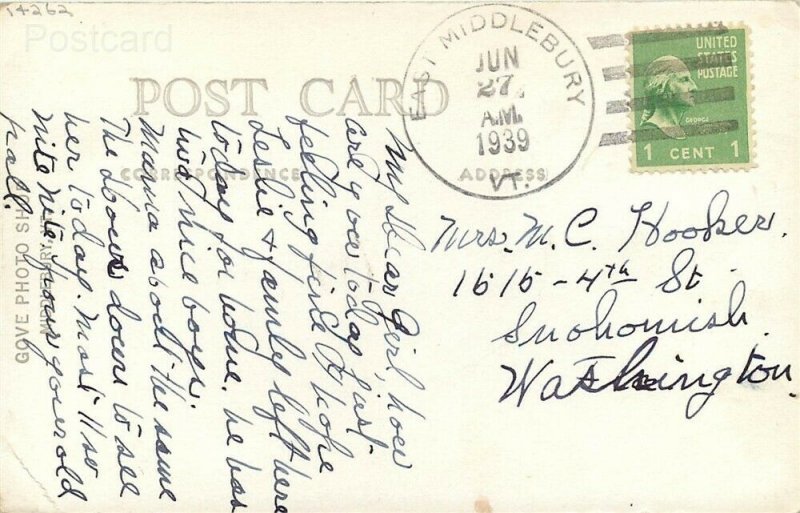 14262
Postcard
POST CARD
CORRESPONDENCE
ADDRESS
EAST MIDDLEBURY
JUN
27
A.M.
1939
VT.
UNITED
STATES
POSTAGE
GEORGE
1 CENT 1
Mrs. M. C. Hooker.
1515 - 4th St.
Snohomish.
Washington.
My Dear Girl, how
are you today just
feeling fine I hope
Leslie & family left here
today for home. he has
two nice boys.
Mama about the same
The down to see
her today. most 11 so
nite nite your your old
pall.
GOVE PHOTO SH
MIDDLEBURY,